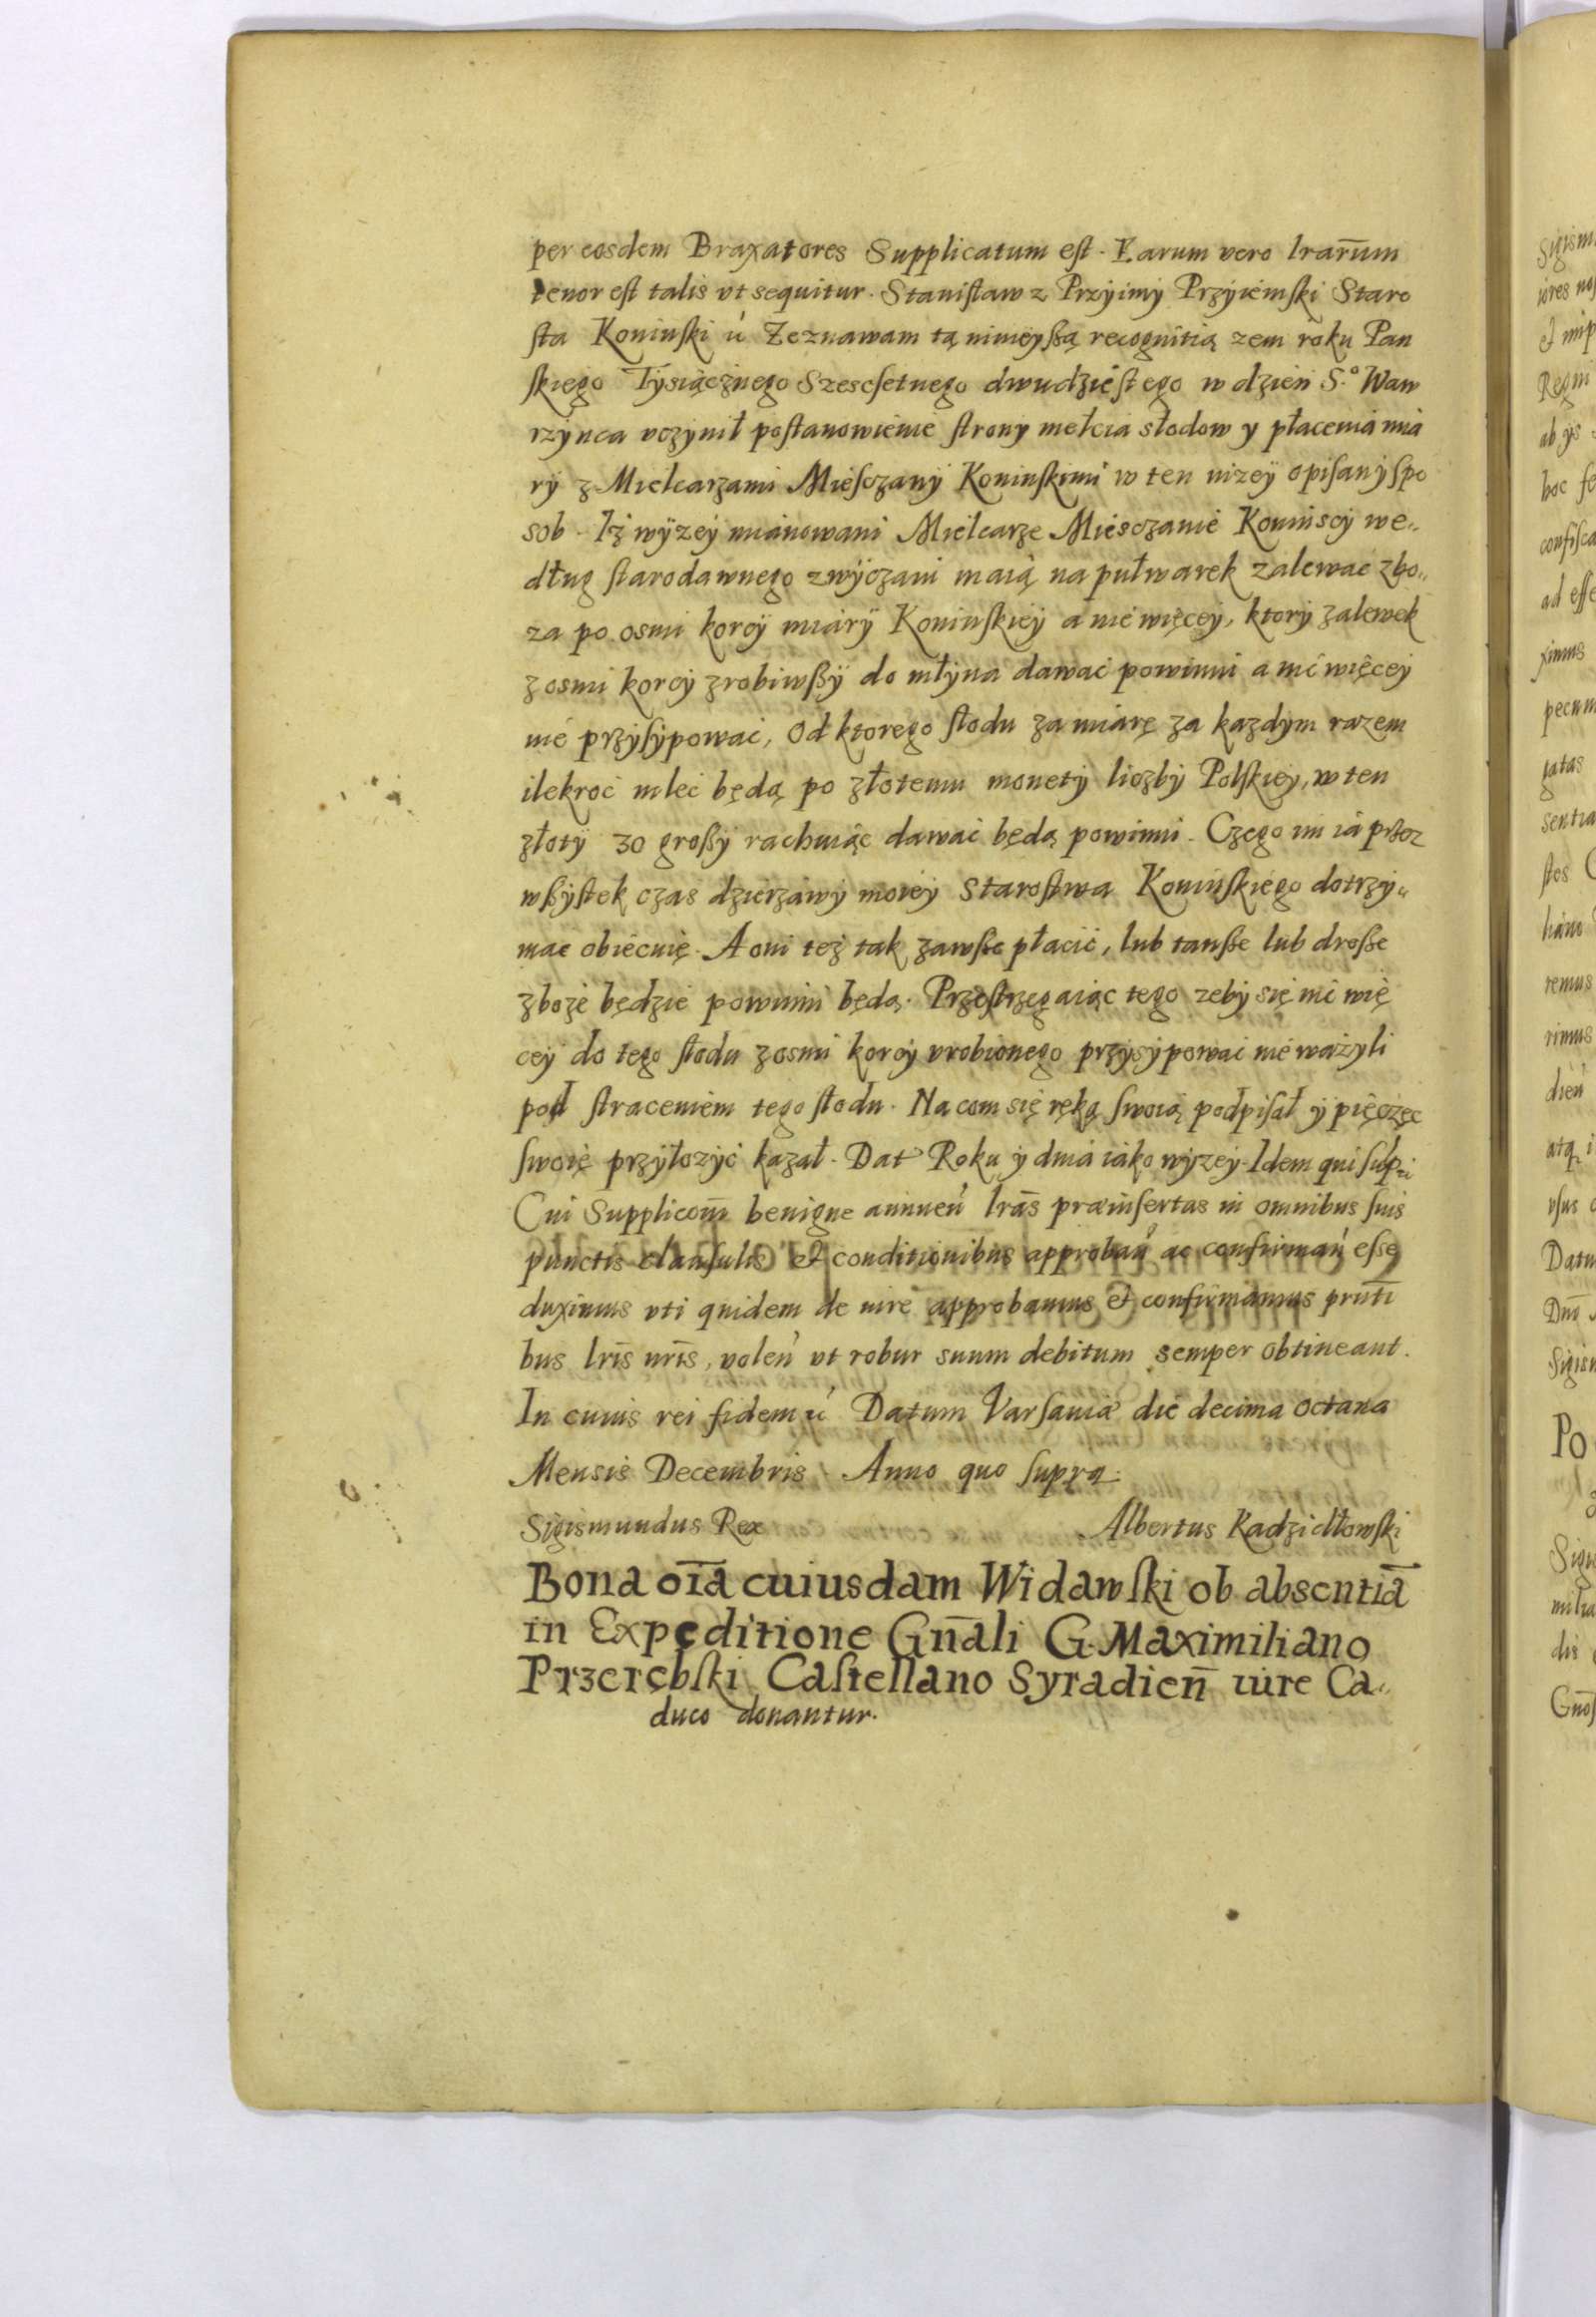 per eosdem Braxatores Supplicatum est. Earum vero lrarum̄
tenor est talis vt sequitur. Stanisław z Przÿimÿ Przÿiemski Staro
sta Koninski ú Zeznawam tą nimeÿßą recognitią zem roku Pan
skiego Tÿsiącznego Szescsetnego dwudziestego w dzien S.° Waw
rzÿnca vczÿnił postanowienie stronÿ mełcia słodow y płacenia mia
rÿ z Mielcarzami Miesczanÿ Koninskimi w ten nizeÿ opisanÿ spo
sob. Iz wÿzeÿ mianowani Mielcarze Miesczanie Koninscÿ we„
dług starodawnego zwÿczaiu maią na pułwarek zalewac zbo„
za po osmi korcÿ miarÿ Koninskieÿ a nie więceÿ, ktorÿ zalewek
z osmi korcÿ zrobiwßÿ do młÿna dawac powinni a nic więceÿ
nie przÿsÿpowac, Od ktorego słodu za miarę za kazdÿm razem
ilekroc mlec będą po złotemu monetÿ liczbÿ Polskieÿ, w ten
złotÿ 30 großÿ rachuiąc dawac będą powinni. Czego im ia przez
wßÿstek czas dzierzawÿ moieÿ Starostwa Koninskiego dotrzÿ„
mac obiecuię. A oni tez tak zawße płacic, lub tanße lub droße
zboze będzie powinni będą. Przestrzegaiąc tego zebÿ się nic wię
ceÿ do tego słodu z osmi korcÿ vrobionego przÿsÿpowac nie wazÿli
pod straceniem tego słodu. Na com się ręką swoią podpisał ÿ pięczęc
swoię przÿłozÿc kazał. Dat Roku ÿ dnia iako wÿzeÿ. Idem qui supri
Cui Supplicōni benigne annueń lrās præinsertas in omnibus suis
punctis clausulis et conditionibus approbań ac confirmań esse
duximus vti quidem de iure approbamus et confirmamus prnti
bus lris nris, voleń vt robur suum debitum semper obtineant.
In cuius rei fidem ú Datum Varsauiæ die decima octaua
Mensis Decembris Anno quo supra.
Sigismundus Rex Albertus Kadzidłowski
Bona oīa cuiusdam Widawski ob absentiā
in Expeditione Gn̄ali G. Maximiliano
Przerębski Castellano Syradien̄ iure Ca„
duco donantur.